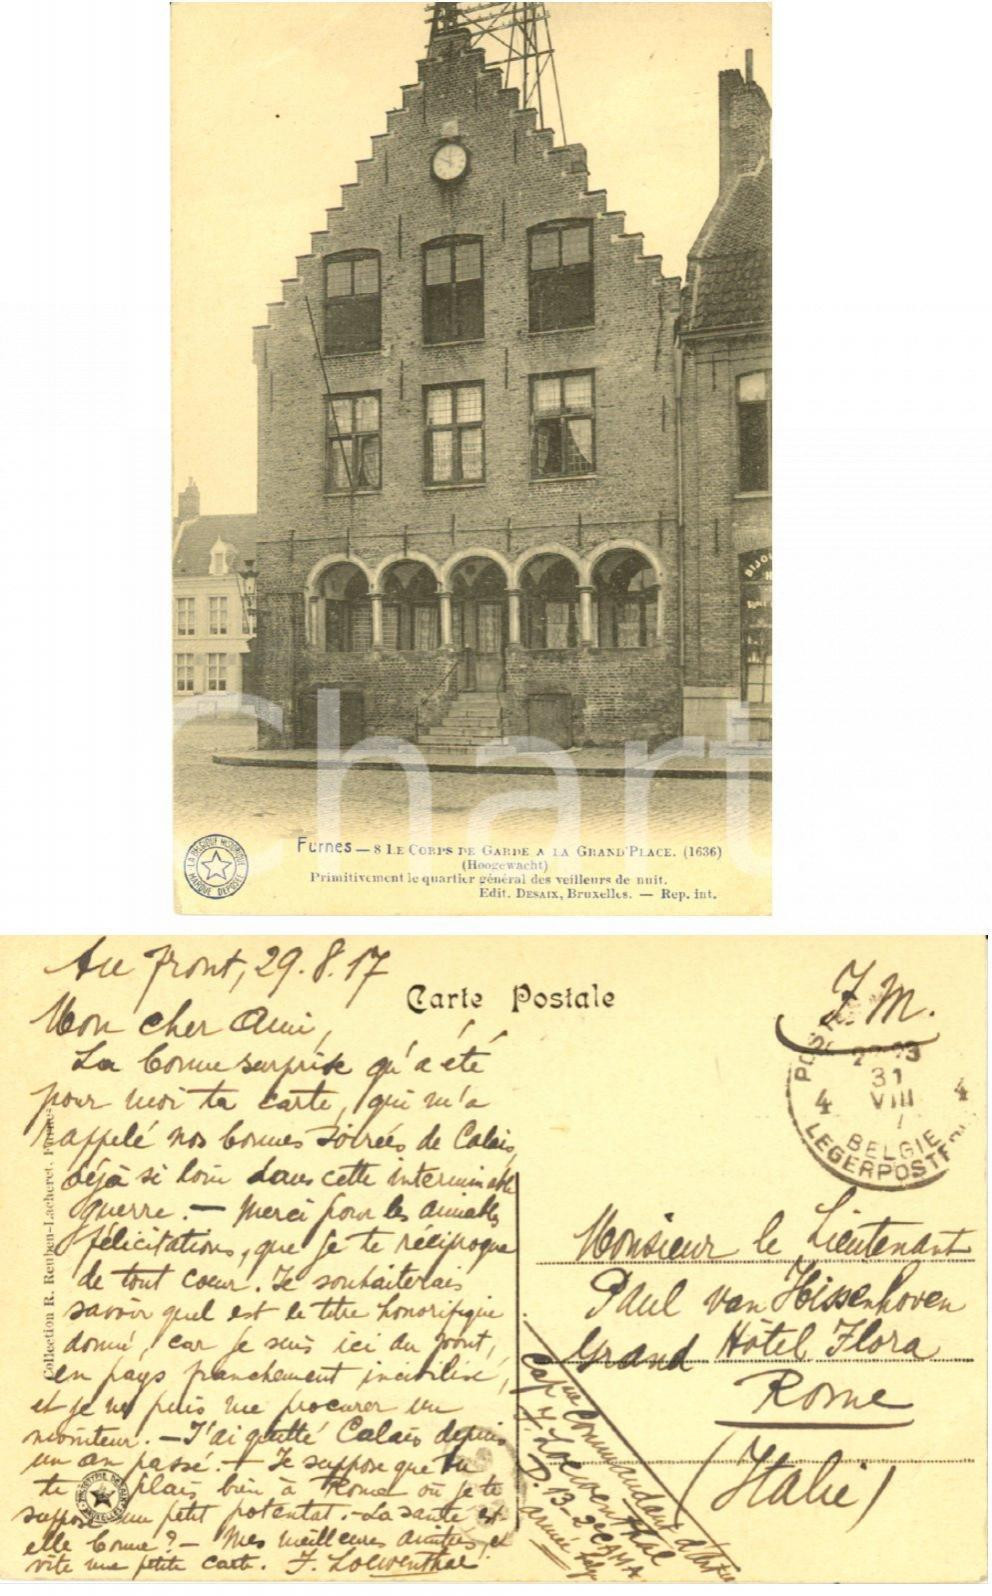 BIJOU
Chart
Furnes — 8 LE CORPS DE GARDE A LA GRAND'PLACE. (1636)
(Hoogewacht)
Primitivement le quartier général des veilleurs de nuit.
Edit. DESAIX, Bruxelles. — Rep. int.
LA BELGIQUE HISTORIQUE
MARQUE DEPOSÉE
Au front, 29.8.17
Carte Postale
F.M.
Mon cher Ami,
La bonne surprise qu'a été
pour moi ta carte, qui m'a
rappelé nos bonnes soirées de Calais,
déjà si loin dans cette interminable
guerre. — Merci pour les aimables
félicitations, que je te réciproque
de tout coeur. Je souhaiterais
savoir quel est le titre honorifique
donné, car je suis ici au front,
en pays franchement incivilisé,
et je ne puis me procurer un
moniteur. — J'ai quitté Calais depuis
un an passé. — Je suppose que tu
te plais bien à Rome où je te
suppose un petit potentat. — La santé est
elle bonne? — Mes meilleures amitiés, et
vite une petite carte. F. Loewenthal
Collection R. Reuben-Lacheret, Furnes
31
VIII
4 4
BELGIE
LEGERPOST
Monsieur le Lieutenant
Paul van Hissenhoven
Grand Hôtel Flora
Rome
(Italie)
Capne Commandant d'Art
F. Loewenthal
D. 13 - 2e CAMA
Armée belge